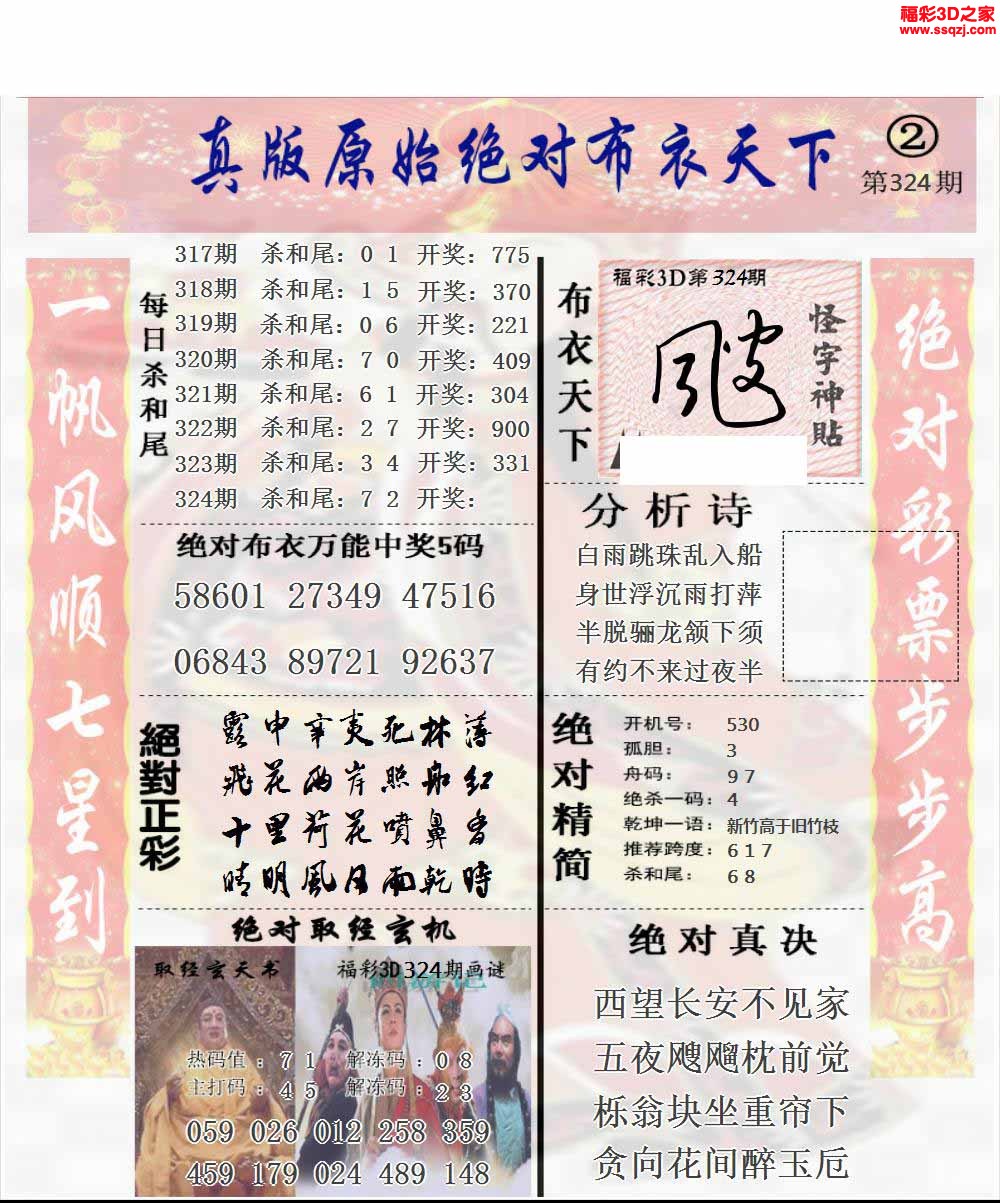 福彩3D之家
www.ssqzj.com
真版原始绝对布衣天下
②
第324期
一帆风顺七星到
每日杀和尾
317期 杀和尾：0 1 开奖：775
318期 杀和尾：1 5 开奖：370
319期 杀和尾：0 6 开奖：221
320期 杀和尾：7 0 开奖：409
321期 杀和尾：6 1 开奖：304
322期 杀和尾：2 7 开奖：900
323期 杀和尾：3 4 开奖：331
324期 杀和尾：7 2 开奖：
绝对布衣万能中奖5码
58601 27349 47516
06843 89721 92637
絕對正彩
露申辛夷死林薄
飛花两岸照船红
十里荷花噴鼻香
晴明風日雨乾時
绝对取经玄机
取经玄天书
福彩3D324期画谜
热码值：7 1 解冻码：0 8
主打码：4 5 解冻码：2 3
059 026 012 258 359
459 179 024 489 148
布衣天下
福彩3D第324期
颇
怪字神貼
分析诗
白雨跳珠乱入船
身世浮沉雨打萍
半脱骊龙颔下须
有约不来过夜半
绝对精简
开机号： 530
孤胆： 3
舟码： 9 7
绝杀一码：4
乾坤一语：新竹高于旧竹枝
推荐跨度：6 1 7
杀和尾： 6 8
绝对真决
西望长安不见家
五夜飕飗枕前觉
栎翁块坐重帘下
贪向花间醉玉卮
绝对彩票步步高